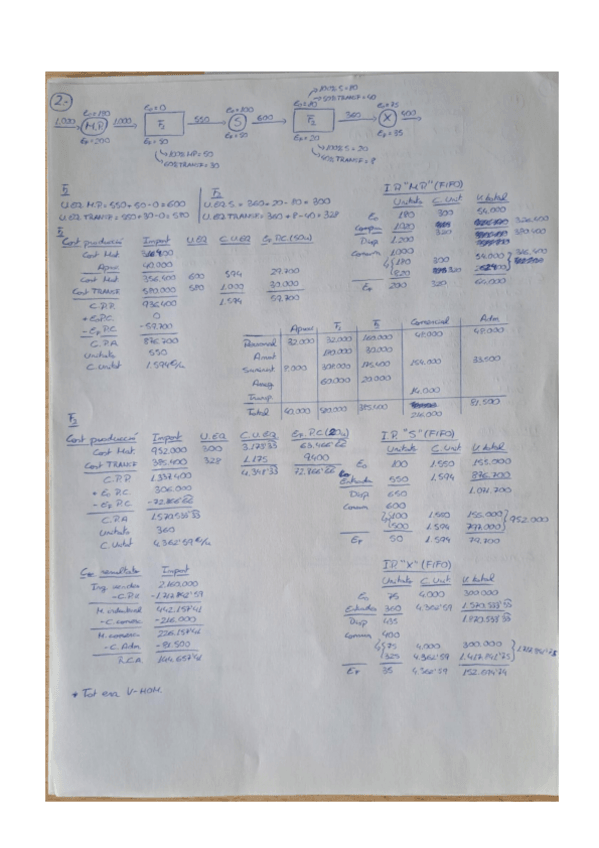 2.-
100% S = 20
50% TRANSF = 40
E₀=180 E₀=0 E₀=100 E₀=20 E₀=75
1.000 M.P. 1.000 F₁ 550 S 600 F₂ 360 X 400
E_F=200 E_F=50 E_F=50 E_F=20 E_F=35
100% MP = 50
60% TRANSF = 30
100% S = 20
40% TRANSF = 8
F₁
U.EQ M.P. = 550 + 50 - 0 = 600
U.EQ TRANSF = 550 + 30 - 0 = 580
F₂
U.EQ S = 360 + 20 - 80 = 300
U.EQ TRANSF = 360 + 8 - 40 = 328
I.P. "M.P." (FIFO)
Unitats C. Unit V. total
E₀ 180 300 54.000
Compra 1.020 320 326.400
Disp 1.200 380.400
Consum 1.000
180 300 54.000
820 320
E_F 200 320 64.000
F₁
Cost producció Import U.EQ C.U.EQ E_F P.C (50u)
Cost Mat. 316.400
Aprov 40.000
Cost Mat 356.400 600 594 29.700
Cost TRANSF 580.000 580 1.000 30.000
C.P.P. 936.400 1.594 59.700
+ E₀ P.C. 0
- E_F P.C -59.700
C.P.A 876.700
Unitats 550
C. Unitat 1.594 €/u
Aprov F₁ F₂ Comercial Adm
Personal 32.000 32.000 48.000 48.000
Amort 30.000
Subminist 8.000 154.000 33.500
60.000 20.000
Transp 14.000
Total 40.000 580.000 385.400 216.000 81.500
F₂
Cost producció Import U.EQ C.U.EQ E_F P.C (20u)
Cost Mat. 952.000 300 3.173'33 63.466'66
Cost TRANSF 385.400 328 1.175 9400
C.P.P 1.337.400 4.348'33 72.866'66
+ E₀ P.C. 306.000
- E_F P.C. -72.866'66
C.P.A 1.570.533'33
Unitats 360
C. Unitat 4.362'59 €/u
I.P. "S" (FIFO)
Unitats C. Unit V. total
E₀ 100 1.550 155.000
Entrades 550 1.594 876.700
Disp 650 1.031.700
Consum 600
100 1.550 155.000
500 1.594 797.000 952.000
E_F 50 1.594 79.700
Cte resultats Import
Ing. vendes 2.160.000
- C.P.V
M. industrial 442.158'41
- C. comerc -216.000
M. comerc 226.158'41
- C. Adm -81.500
R.C.A 144.658'41
I.P. "X" (FIFO)
Unitats C. Unit V. total
E₀ 75 4.000 300.000
Entrades 360 4.362'59 1.570.533'33
Disp 435 1.870.533'33
Consum 400
75 4.000 300.000
325 4.362'59 1.417.841'75
E_F 35 4.362'59
* Tot era V-HOM.